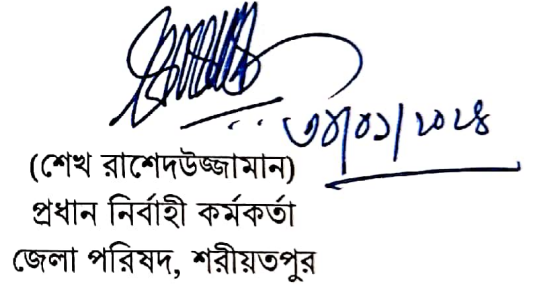 ৩১/০১/২০২৪
(শেখ রাশেদউজ্জামান)
প্রধান নির্বাহী কর্মকর্তা
জেলা পরিষদ, শরীয়তপুর